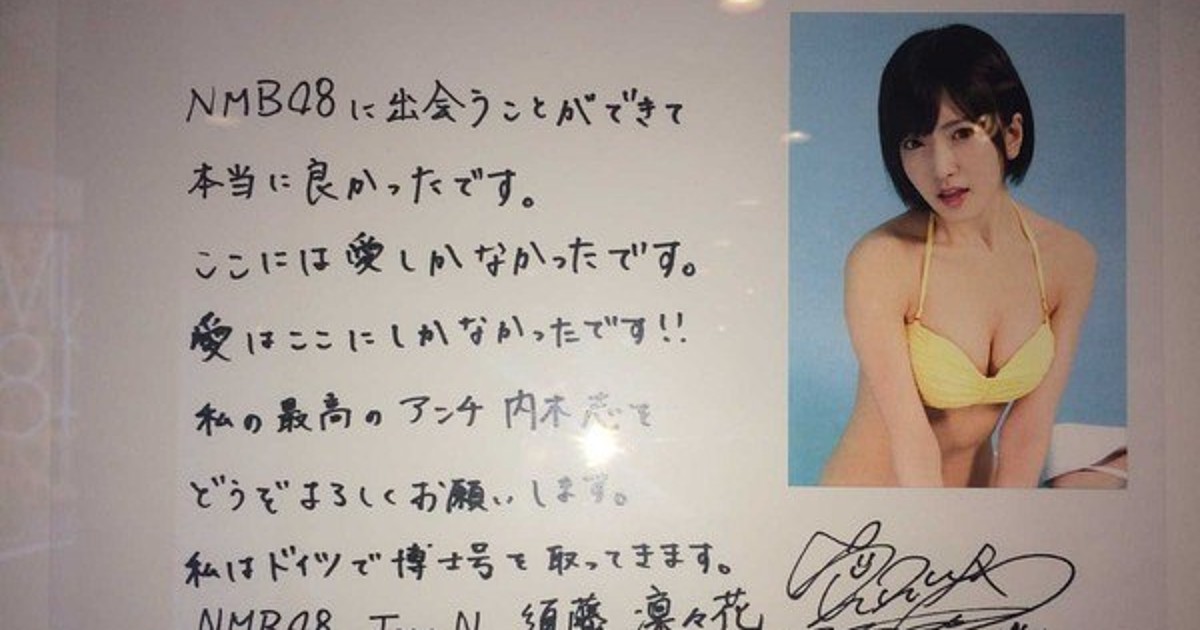 NMB48に出会うことができて
本当に良かったです。
ここには愛しかなかったです。
愛はここにしかなかったです!!
私の最高のアンチ内木志を
どうぞよろしくお願いします。
私はドイツで博士号を取ってきます。
NMB48 Team N 須藤 凛々花